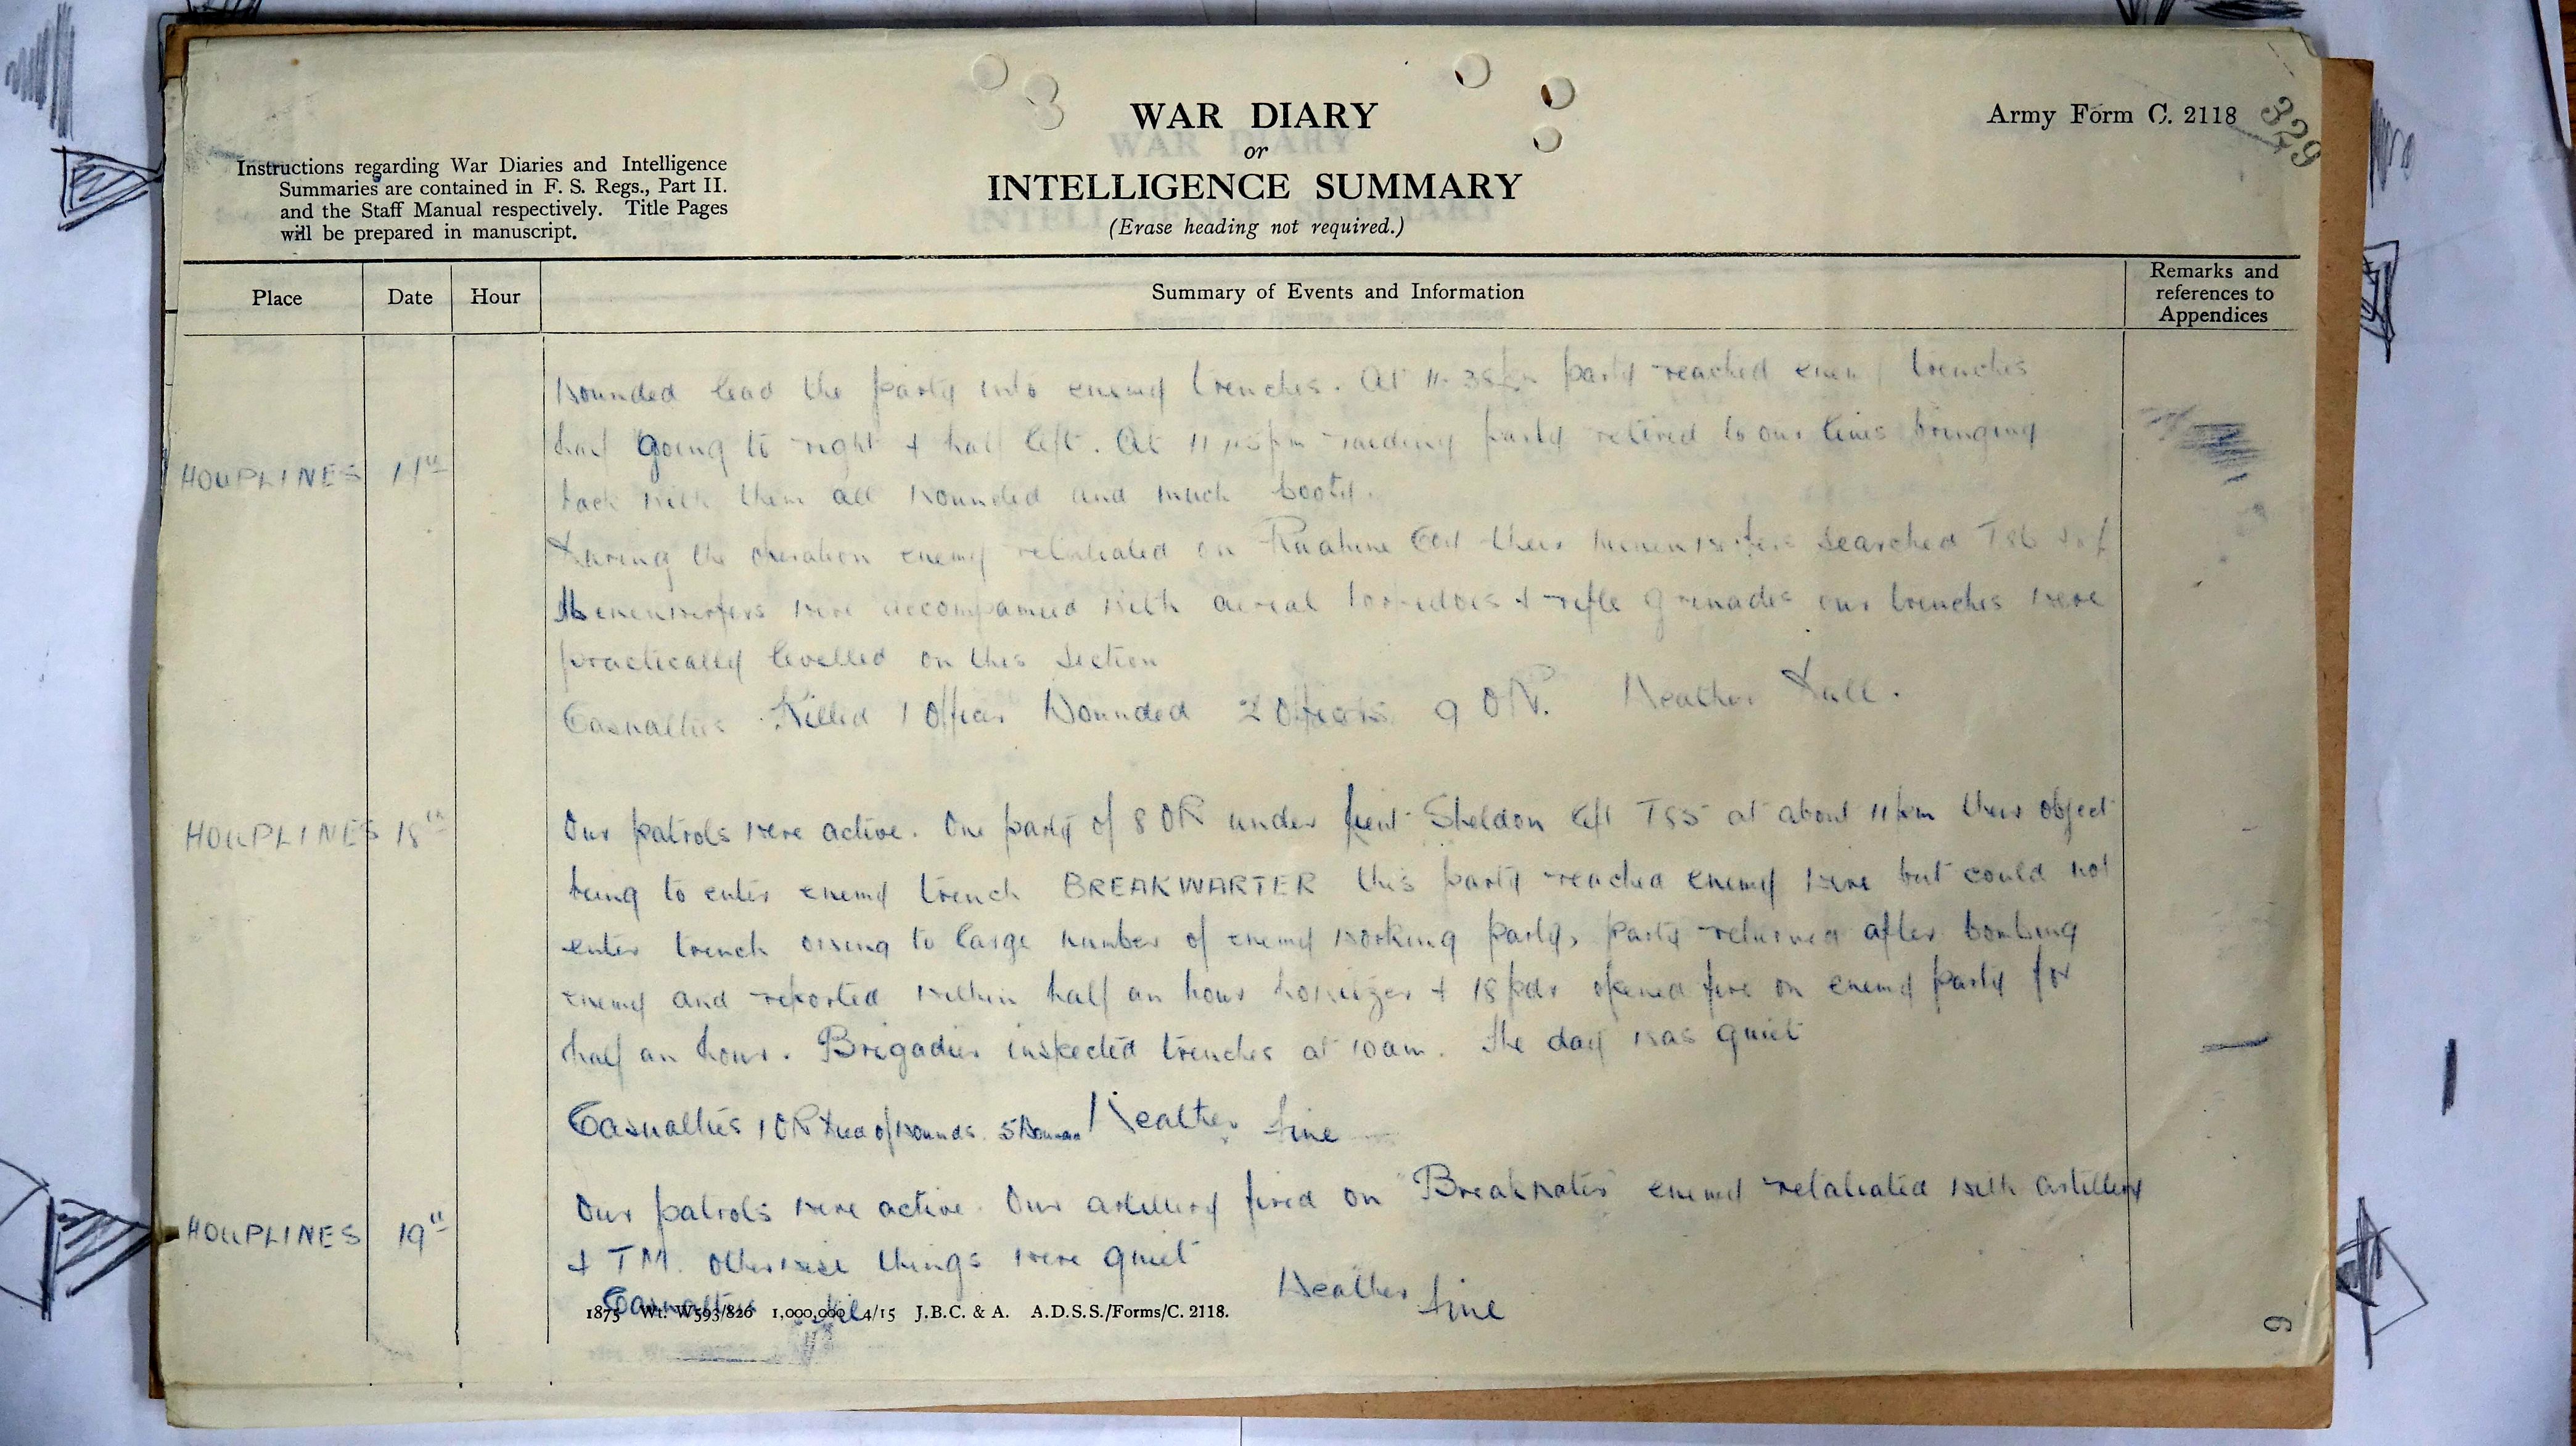 WAR DIARY
or
INTELLIGENCE SUMMARY
(Erase heading not required.)
Army Form C. 2118
329
Instructions regarding War Diaries and Intelligence
Summaries are contained in F. S. Regs., Part II.
and the Staff Manual respectively. Title Pages
will be prepared in manuscript.
Place Date Hour Summary of Events and Information Remarks and references to Appendices
wounded lead the party into enemy trenches. At 11.35pm party reached enemy trenches
half going to right & half left. At pm raiding party retired to our lines bringing
HOUPLINES 17th
back with them all wounded and much booty.
During the operation enemy retaliated on their minenwerfers searched T86
Minenwerfers were accompanied with aereal torpedoes & rifle grenades our trenches were
practically levelled on this section
Casualties Killed 1 Officer Wounded 2 Officers 9 OR. Weather Dull.
HOUPLINES 18th Our patrols were active. One party of 8 OR under Lieut Sheldon left T85 at about 11pm their object
being to enter enemy trench BREAKWARTER this party reached enemy wire but could not
enter trench owing to large number of enemy working party, party returned after bombing
enemy and reported within half an hour howitzer & 18 pdr opened fire on enemy party for
half an hour. Brigadier inspected trenches at 10am. The day was quiet
Casualties 1 OR died of wounds. 5 Wounded Weather fine
HOUPLINES 19th Our patrols were active. Our artillery fired on "Breakwater" enemy retaliated with artillery
& TM. otherwise things were quiet
Casualties Nil Weather fine
1875 Wt. W593/826 1,000,000 4/15 J.B.C. & A. A.D.S.S./Forms/C. 2118.
9